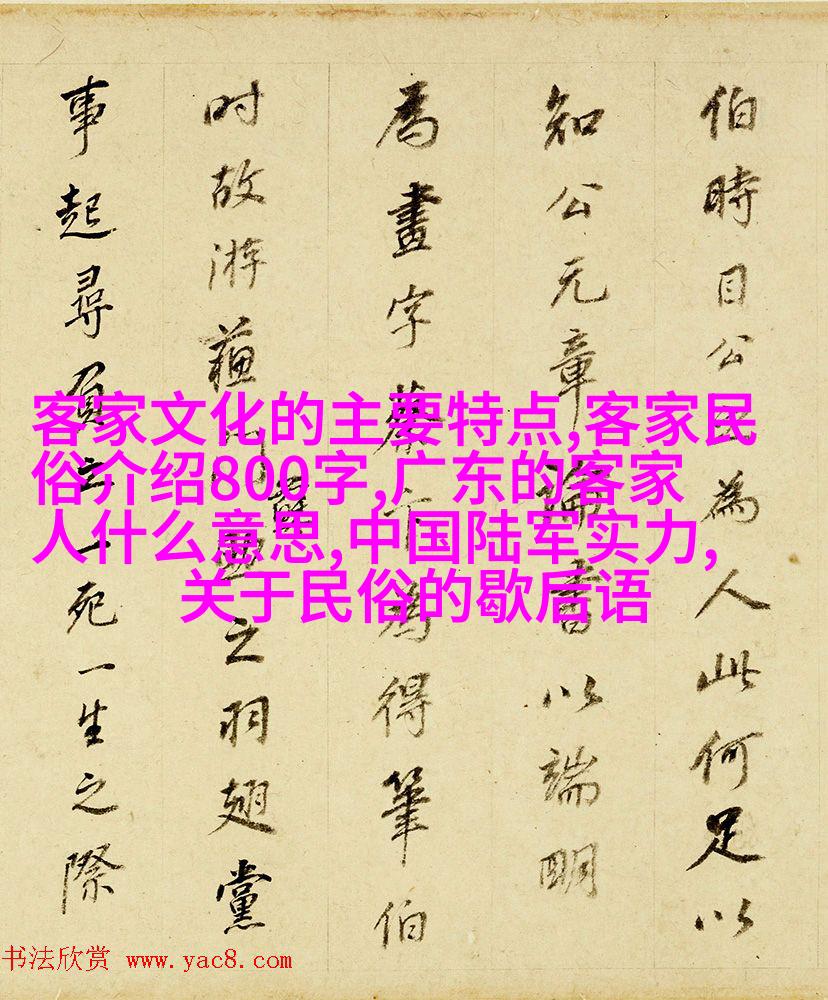 伯時目公
為人此何足以
知公元章論書以端明
為畫字蔡
為得筆伯
时故游蘓
之羽翅黨
事起尋
一死一生之際
客家文化的主要特点,客家民
俗介绍800字,广东的客家
人什么意思,中国陆军实力,
关于民俗的歇后语
书法欣赏 www.yac8.com